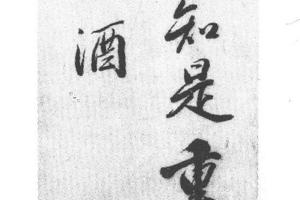 知是重
酒